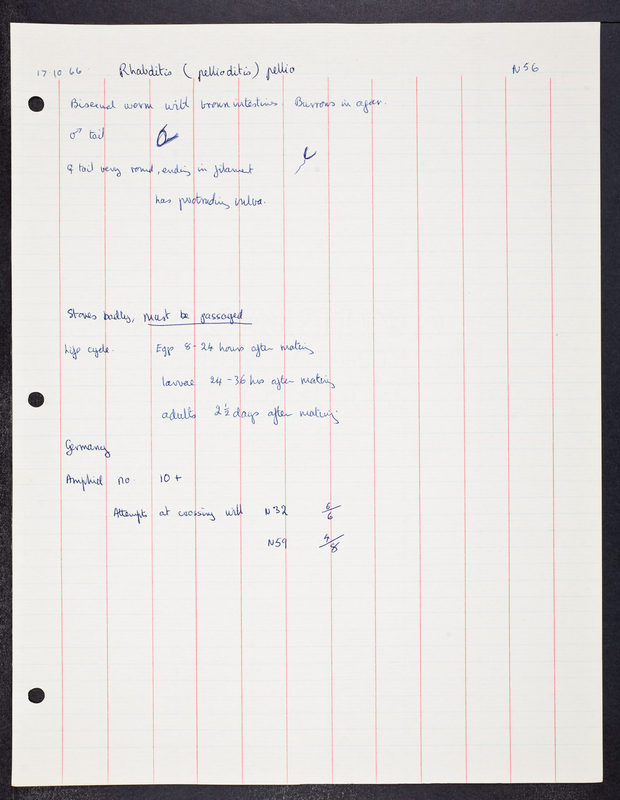 17.10.66 Rhabditis (pellioditis) pellio N56
Bisexual worm with brown intestine. Burrows in agar.
♂ tail
♀ tail very round, ending in filament
has protruding vulva.
Stores badly, must be passaged
Life cycle. Eggs 8-24 hours after mating
larvae 24-36 hrs after mating
adults 2½ days after mating
Germany
Amphid no 10+
Attempts at crossing with N32 6/6
N59 4/8